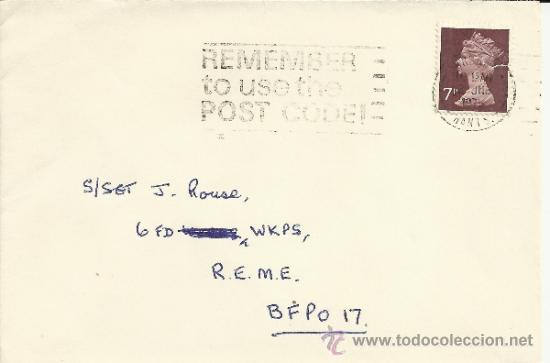 REMEMBER
to use the
POST CODE!
7P
S/SGT J. Rouse,
6 FD WKPS,
R.E.M.E.
BFPO 17.
www.todocoleccion.net